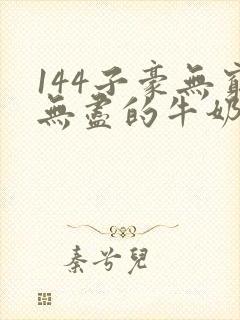 144子豪無窮
無盡的牛奶
秦兮兒